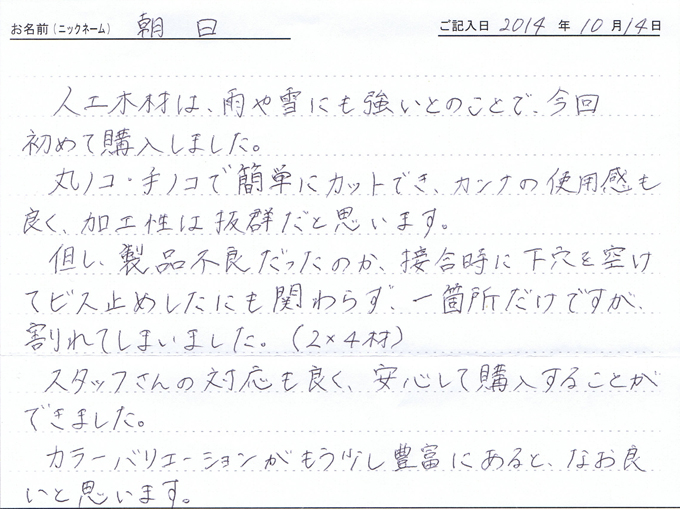 お名前(ニックネーム) 朝日 ご記入日 2014 年 10 月 14 日
人工木材は、雨や雪にも強いとのことで、今回
初めて購入しました。
丸ノコ・手ノコで簡単にカットでき、カンナの使用感も
良く、加工性は抜群だと思います。
但し、製品不良だったのか、接合時に下穴を空け
てビス止めしたにも関わらず、一箇所だけですが、
割れてしまいました。(2×4材)
スタッフさんの対応も良く、安心して購入することが
できました。
カラーバリエーションがもう少し豊富にあると、なお良
いと思います。